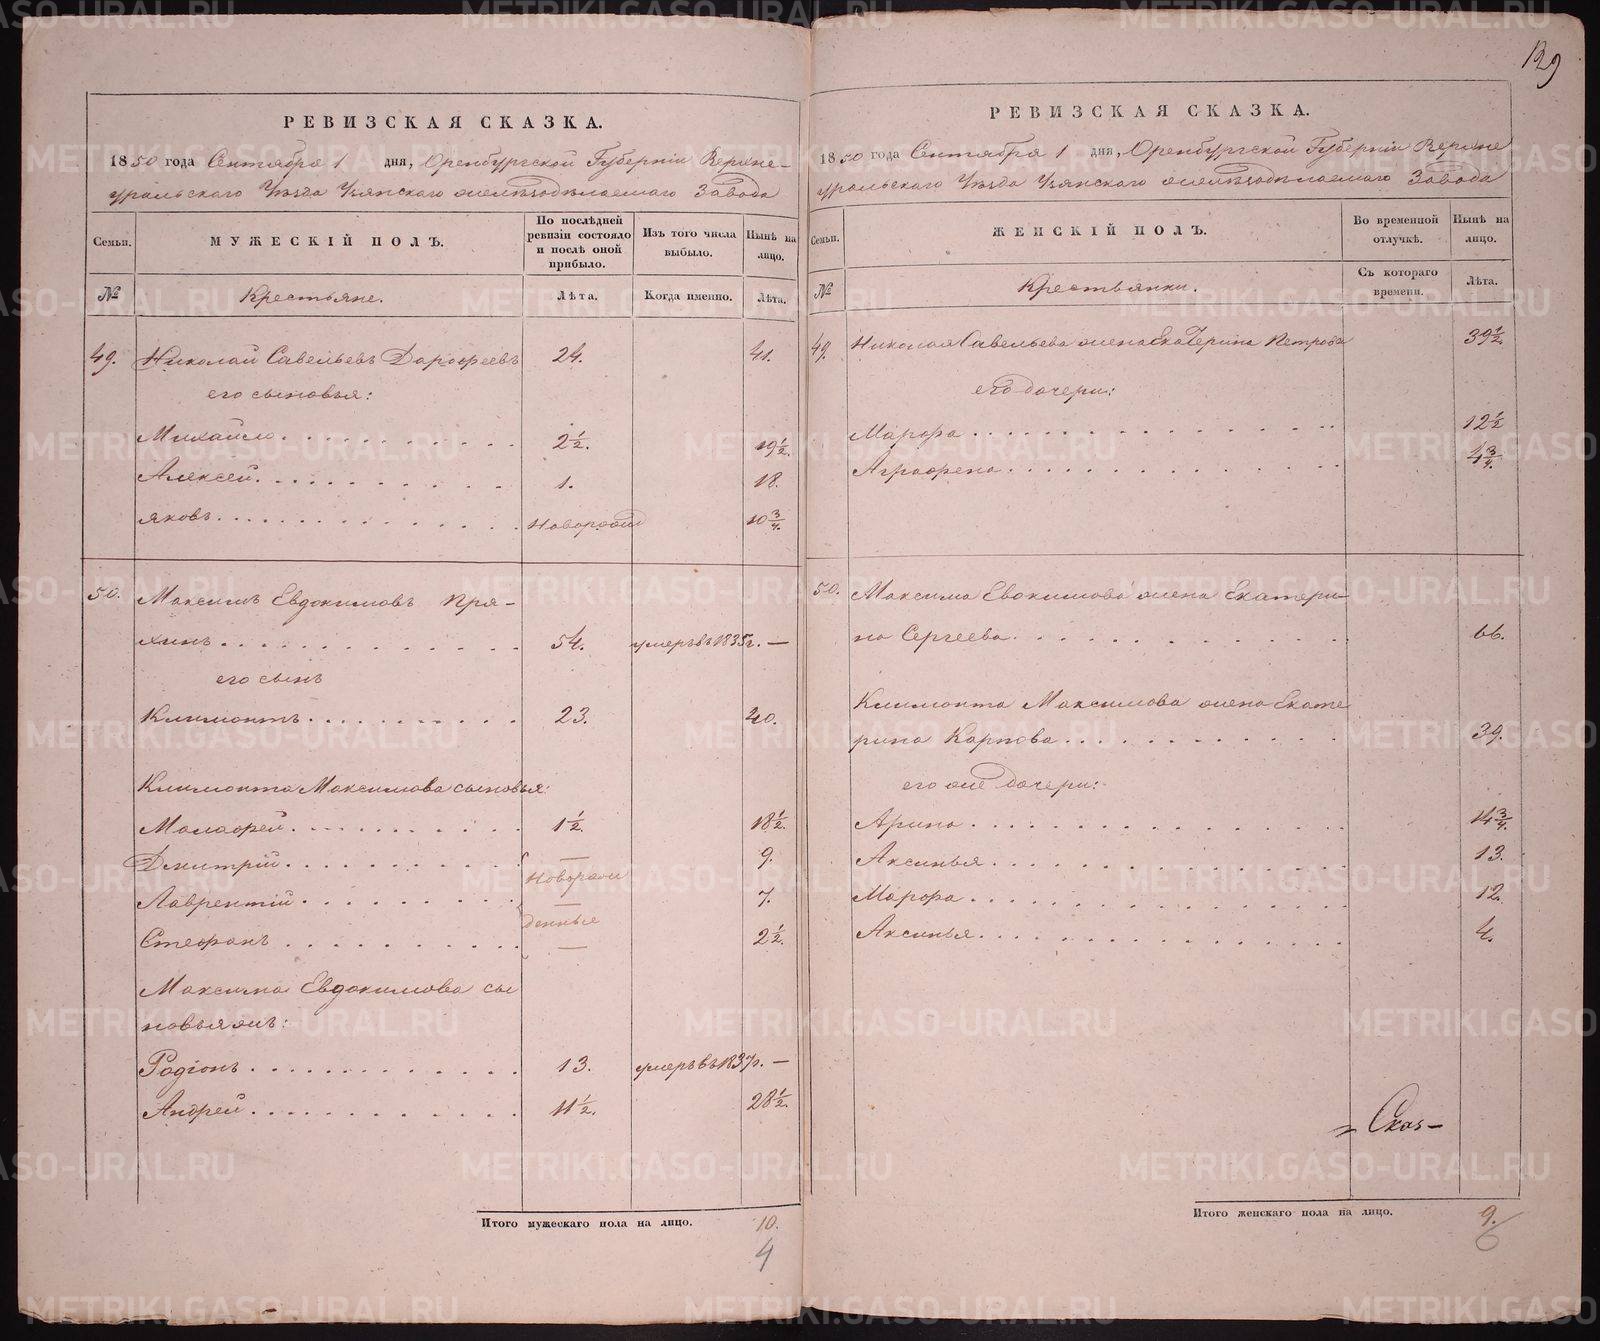 129
РЕВИЗСКАЯ СКАЗКА.
1850 года Сентября 1 дня, Оренбургской Губерніи Верхне-
уральскаго Уѣзда Узянскаго желѣзодѣлаемаго Завода
Семьи.
МУЖЕСКІЙ ПОЛЪ.
По послѣдней ревизіи состояло и послѣ оной прибыло.
Изъ того числа выбыло.
Нынѣ на лицо.
№
Крестьяне.
Лѣта.
Когда именно.
Лѣта.
49. Николай Савельевъ Дарофеевъ 24. 41.
его сыновья:
Михайло 2½. 19½.
Алексей 1. 18.
Яковъ Новорожд 10¾.
50. Максимъ Евдокимовъ Пря-
хинъ 54. умеръ въ 1835г. —
его сынъ
Климонтъ 23. 40.
Климонта Максимова сыновья:
Малафей 1½. 18½.
Дмитрій — 9.
Новорож
Лаврентій — 7.
денные
Стефанъ — 2½.
Максима Евдокимова сы
новья жъ:
Родіонъ 13. умеръ въ 1837г. —
Андрей 11½. 28½.
Итого мужескаго пола на лицо. 10.
4
РЕВИЗСКАЯ СКАЗКА.
1850 года Сентября 1 дня, Оренбургской Губерніи Верхне
уральскаго Уѣзда Узянскаго желѣзодѣлаемаго Завода
Семьи.
ЖЕНСКІЙ ПОЛЪ.
Во временной отлучкѣ.
Нынѣ на лицо.
№
Крестьянки.
Съ котораго времени.
Лѣта.
49. Николая Савельева жена Екатерина Петрова 39½.
его дочери:
Марфа 12½
Аграфена 4¾.
50. Максима Евокимова жена Екатери-
на Сергеева 66.
Климонта Максимова жена Екате
рина Карпова 39.
его же дочери:
Арина 14¾.
Аксинья 13.
Марфа 12.
Аксинья 4.
Сказ-
Итого женскаго пола на лицо. 9.
6
METRIKI.GASO-URAL.RU